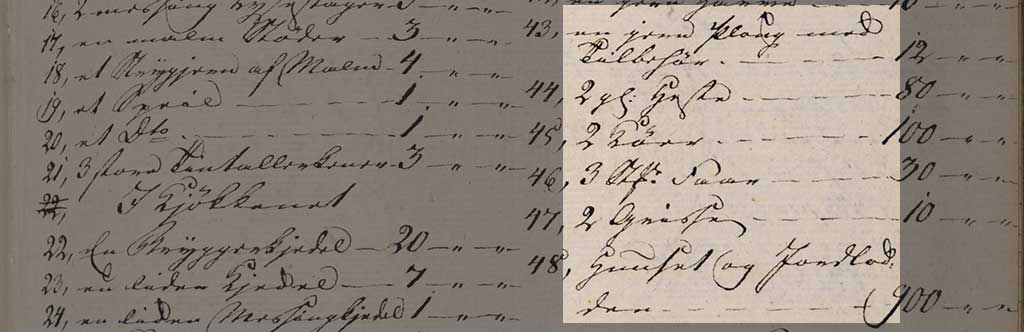 16, 2 messing Lysestager 3 " "
17, en malm Støder - 3 - " - " -
18, et Strygjern af Malm - 4. - " - "
19, et Speil - - - 1. - " - "
20, et Dto. - - - 1 - " - "
21, 3 store Tintallerkener - 3 - " - "
I Kjøkkenet
22, En Bryggerkjedel - 20 - " - "
23, en liden Kjedel - 7 - " - "
24, en liden Messingkjedel 1 - " - "
43, en jern Ploug med
Tilbehør. - - - 12 - " - "
44, 2 pl: Heste - - - 80 - " - "
45, 2 Køer - - - 100 - " - "
46, 3 Stk: Faar - - - 30 - " - "
47, 2 Grisse - - - 10 " "
48, Huuset og Jordlod-
den - - - 900 - " - "